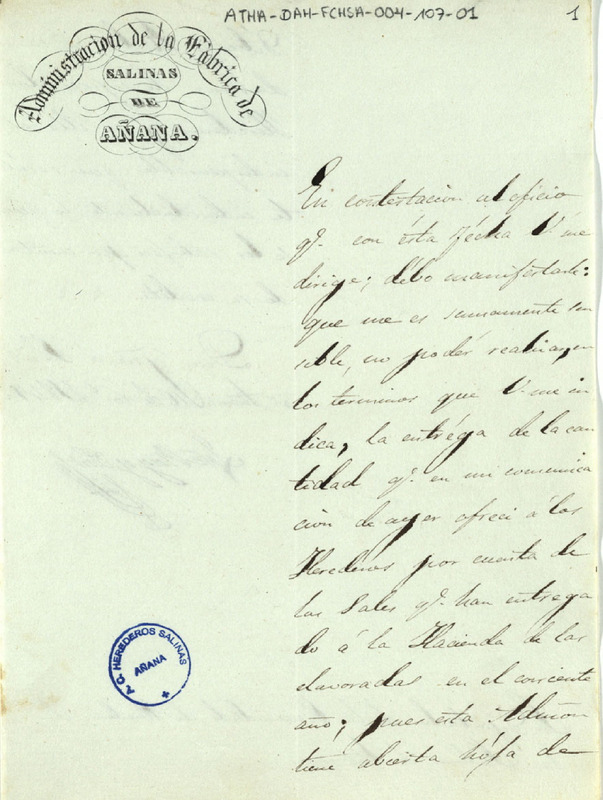 ATHA-DAH-FCHSA-004-107-01
1
Administracion de la Fábrica de
SALINAS
DE
AÑANA.
En contestacion al oficio
qe. con ésta fécha V. me
dirige; débo manifestarle:
que me es sumamente sen
sible, no podér realizar, en
los terminos que V. me in
dica, la entréga de la can
tidad qe. en mi comunica
ción de ayer ofreci á los
Herederos por cuenta de
las Sales qe. han entrega
do á la Hacienda de las
elavoradas en el corriente
año; pues esta Admon
tiene abierta hója de
A. C. HEREDEROS SALINAS
AÑANA